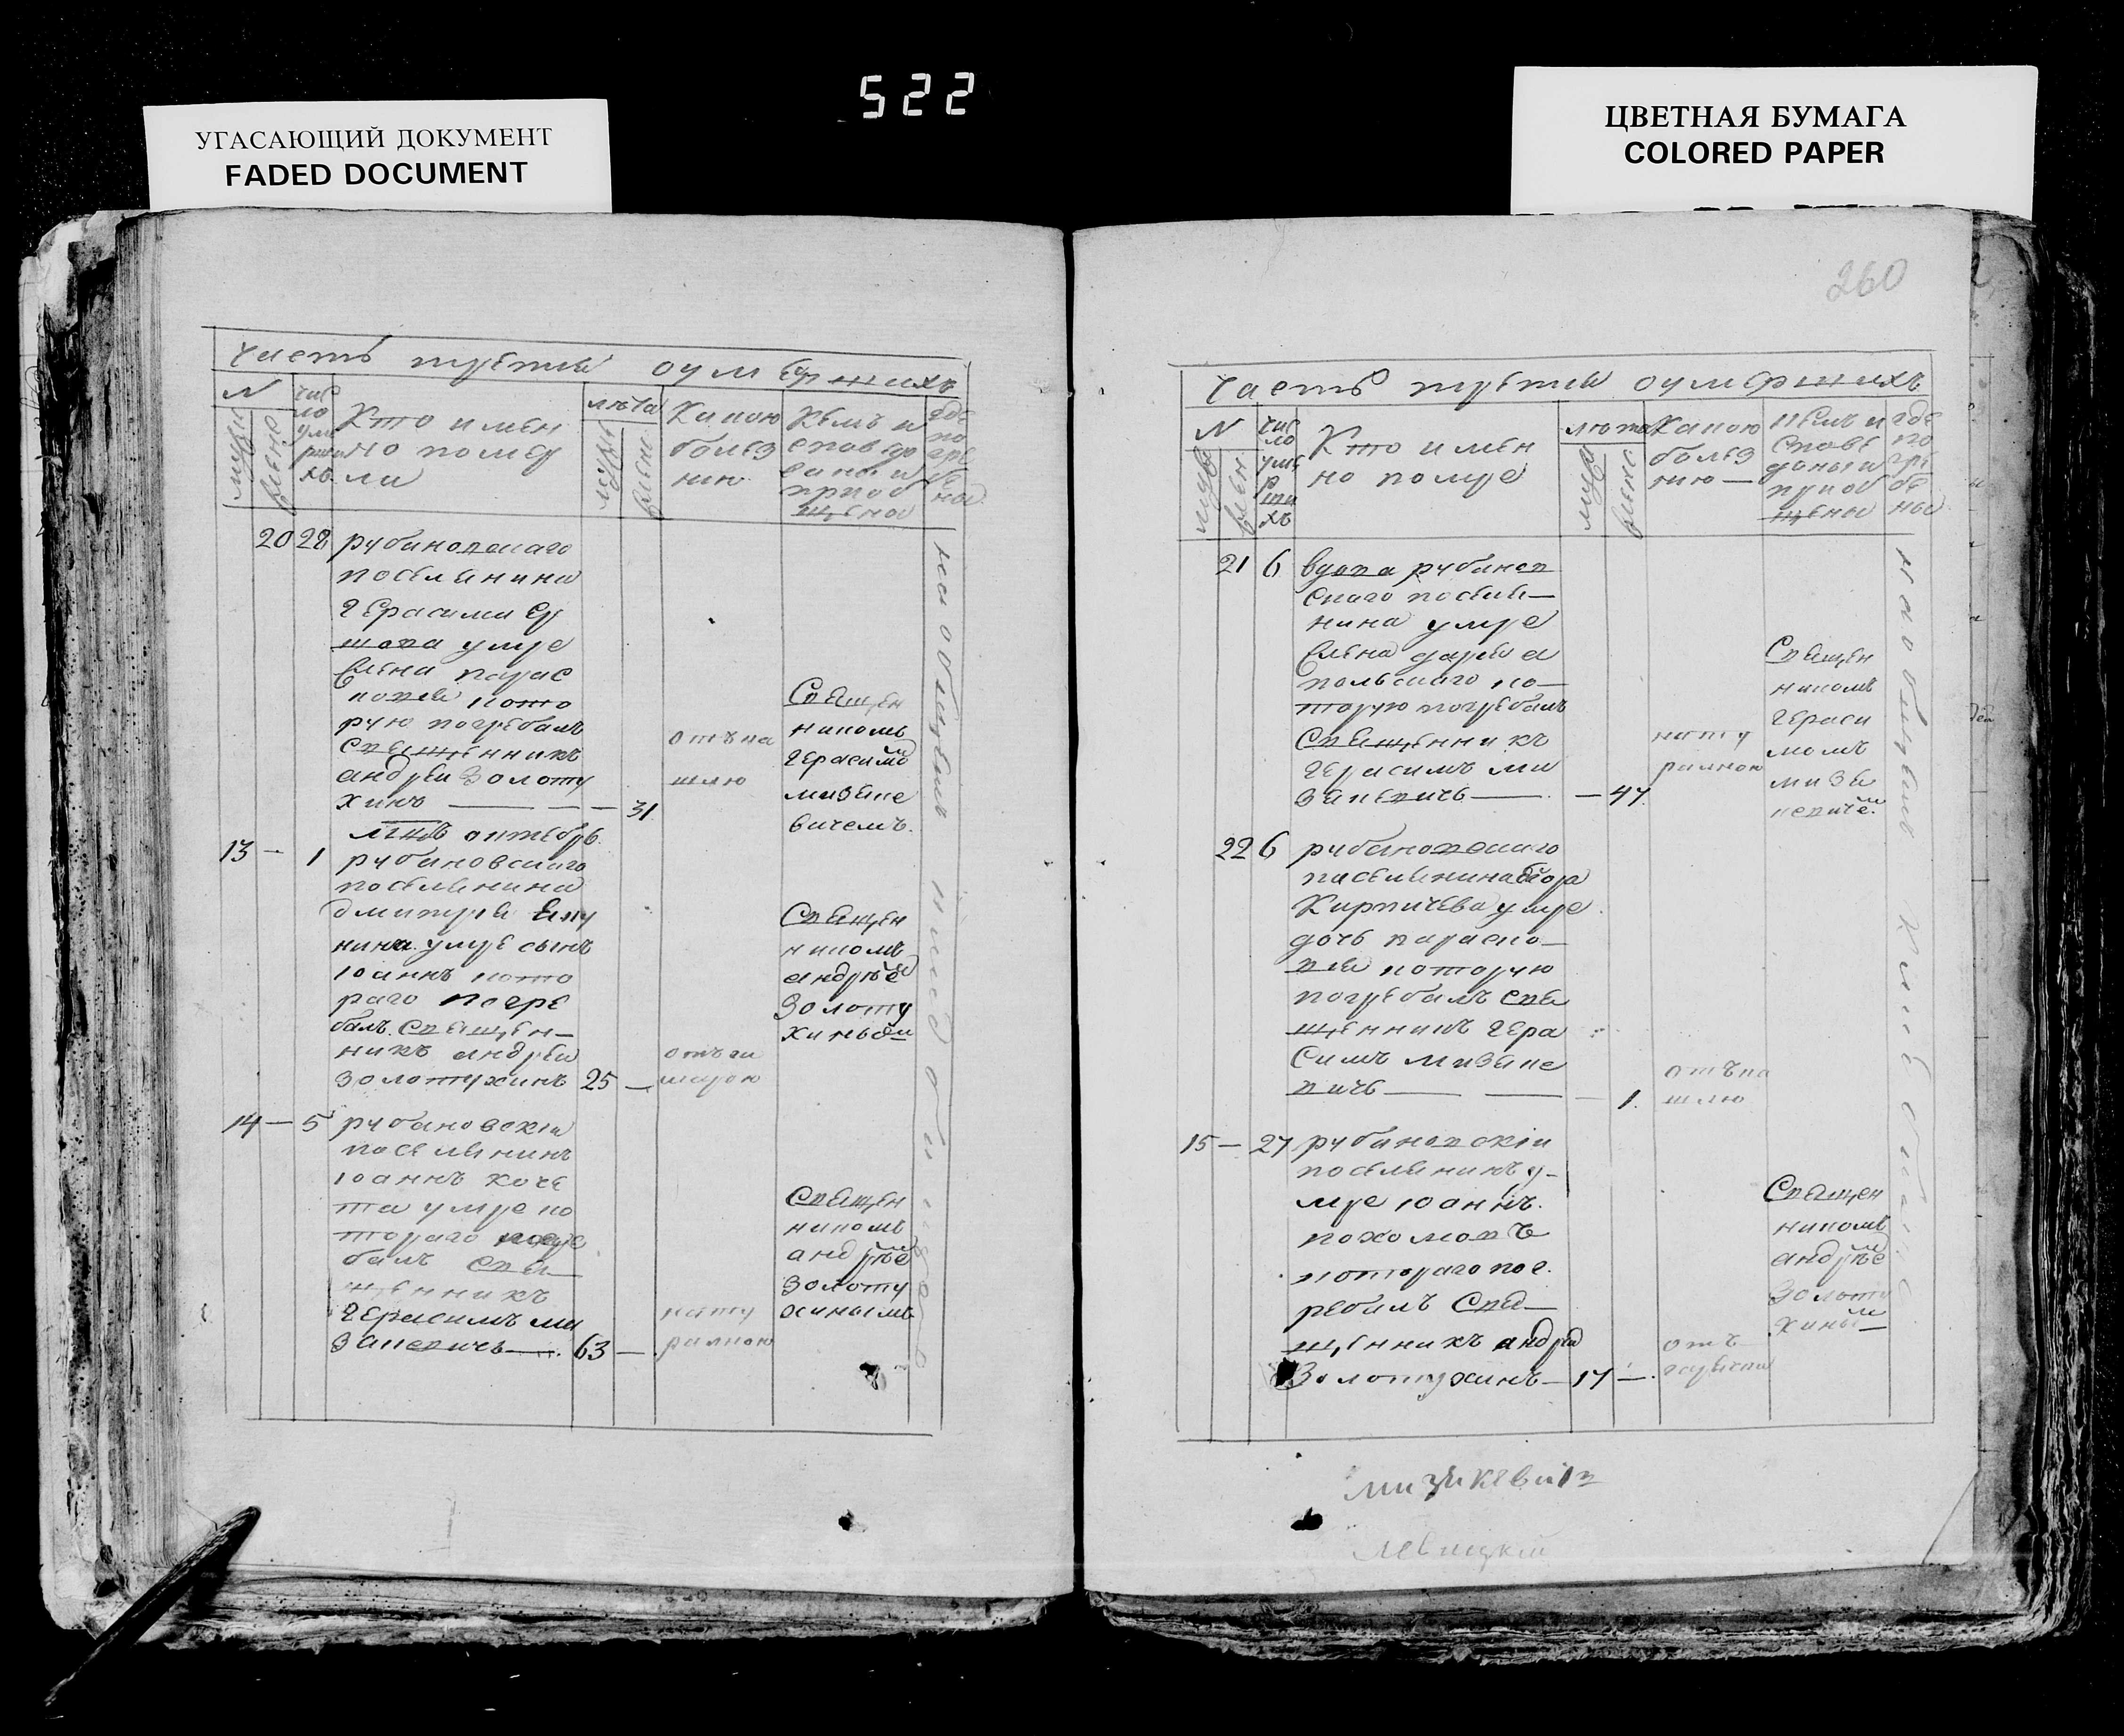 522
УГАСАЮЩИЙ ДОКУМЕНТ
FADED DOCUMENT
ЦВЕТНАЯ БУМАГА
COLORED PAPER
часть третия оумершихъ
N
чис
ло
уме
рши
хъ
мужи
женс
Кто имен
но поме
ли
лета
мужи
женс
Какою
болез
нию
Кемъ и
спове до
ваны и
приоб
щены
где
по
гре
бе
ны
20 28 рубановскаго
поселянина
Герасима Ер
шова умре
Елена парас
ковея кото
рую погребалъ
Священникъ
андреи Золоту
хинъ — — — 31
отъ ка
шлю
Священ
никомъ
Герасимо
мизеке
вичемъ.
мцъ октебрь
13 — 1 рубановскаго
поселянина
дмитрея
нина умре сынъ
Иоаннъ кото
раго погре
балъ Священ—
никъ андреи
Золотухинъ 25 —
Священ
никомъ
андрее
Золоту
хиным
14 — 5 рубановскии
поселянинъ
Иоаннъ коче
та умре ко
тораго погре
балъ Свя—
щенникъ
Герасимъ ми
закевичь — 63 —
нату
ралною
Священ
никомъ
андрее
Золоту
хинымъ
на общемъ кладбище
260
часть третия оумершихъ
N
мужи
женс
чис
ло
уме
р
ши
хъ
Кто имен
но помре
лета
мужи
женс
Какою
болез
нию —
Кемъ и
спове
даны и
приоб
щены
где
по
гре
бе
ны
21 6 вдова рубанов
скаго поселя—
нина умре
Елена
польскаго ко—
торую погребалъ
Священникъ
Герасимъ ми
закевичь — — 47
нату
ралною
Священ
никомъ
Гераси
момъ
мизе
кевиче
22 6 рубановскаго
поселянина
Кирпичева умре
дочь параско—
вея которую
погребалъ Свя
щенникъ Гера
симъ мизеке
вичь — — — 1.
отъ ка
шлю
15 — 27 рубановскии
поселянинъ у—
мре Иоаннъ
пахомовъ
котораго пог
ребалъ Свя—
щенникъ андреи
Золотухинъ — 17 —
отъ
горячки
Священ
никомъ
андрее
Золоту
хины
Левицкий